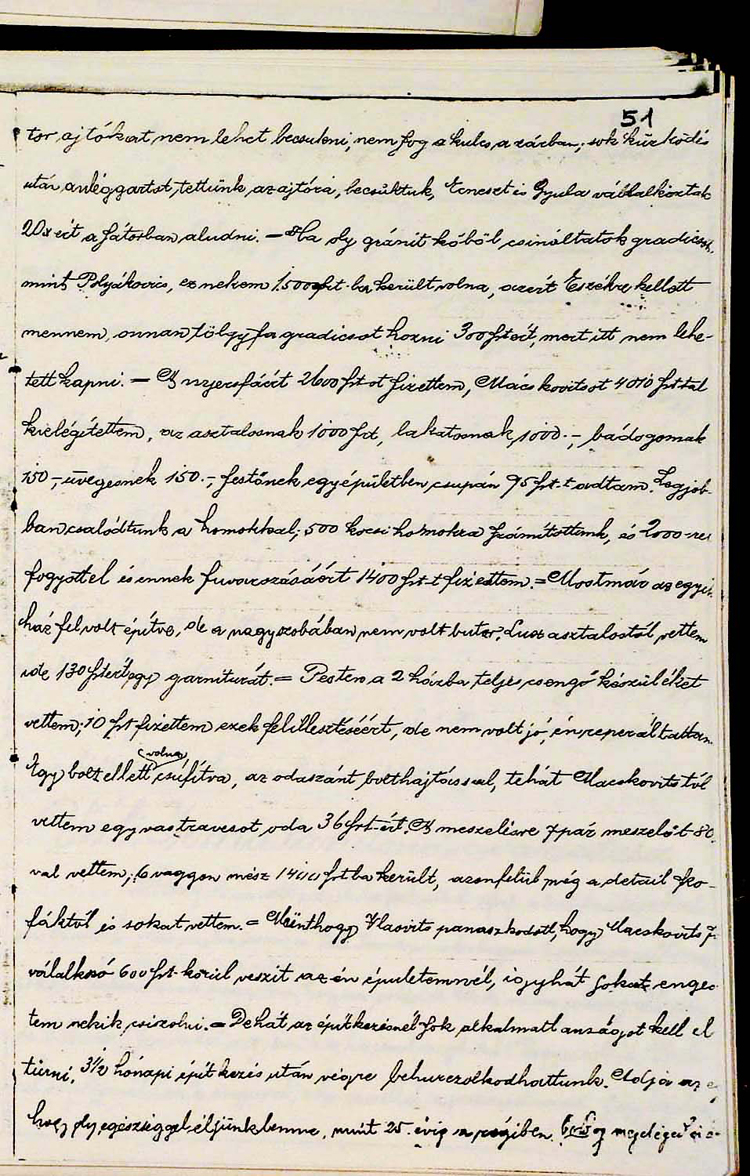 51
tor ajtókat nem lehet becsukni, nem fog a kulcs a zárban; sok kűzködés
után anléggartot tettünk az ajtóra, becsuktuk, Erneszt és Gyula vállalkoztak
20x ért a sátorban aludni. — Ha oly gránit kőből csináltatok gradicsot,
mint Polyákovics, ez nekem 1500 frt-ba került volna, azért Eszékre kellett
mennem, onnan tölgyfa gradicsot hozni 300 frtért, mert itt nem lehe-
tett kapni. — A nyersfáért 2600 frt-ot fizettem, Mácskovitsot 4010 frt-tal
kielégítettem, az asztalosnak 1000 frt, lakatosnak 1000.-, bádogosnak
150-, üvegesnek 150.-, festőnek egy épületben csupán 95 frt-t adtam. Legjob-
ban csalódtunk a homokkal; 500 kocsi homokra számítottunk, és 2000-re
fogyott el és ennek fuvarozásáért 1400 frt-t fizettem. = Most már az egyik
ház fel volt építve, de a nagyszobában nem volt butor. Lusz asztalostól vettem
ide 130 frtért egy garniturát. = Pesten a 2 házba teljes csengő készüléket
vettem; 10 frt fizettem ezek felillesztéséért, de nem volt jó, én reperáltattam.
Egy bolt ellett volna csúfítva, az odaszánt bolthajtással, tehát Macskovitstól
vettem egy vas traversot oda 36 frt-ért. A meszelésre 7 pár meszelőt 80.
val vettem; 6 vaggon mész 1400 frtba került, azonfelül még a detail ko-
fáktól is sokat vettem. = Minthogy Vlasits panaszkodott, hogy Macskovits
válalkozó 600 frt körül veszit az én épületemnél, így hát sokat enged-
tem nekik csiszolni. = De hát az építkezésnél sok alkalmatlanságot kell el
tűrni. 3½ hónapi építkezés után végre behurczolkodhattunk. Adja az
hogy oly egészséggel éljünk benne, mint 25 évig a régiben.